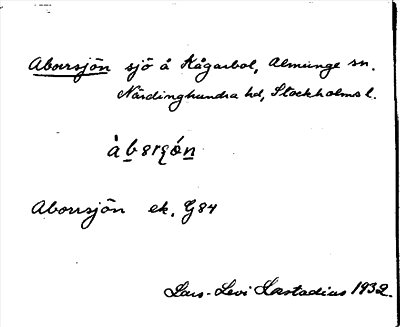 Aborrsjön sjö å Kågarbol, Almunge sn.
Närdinghundra hd, Stockholms l.
Aborrsjön ek. G84
Lars-Levi Læstadius 1932.